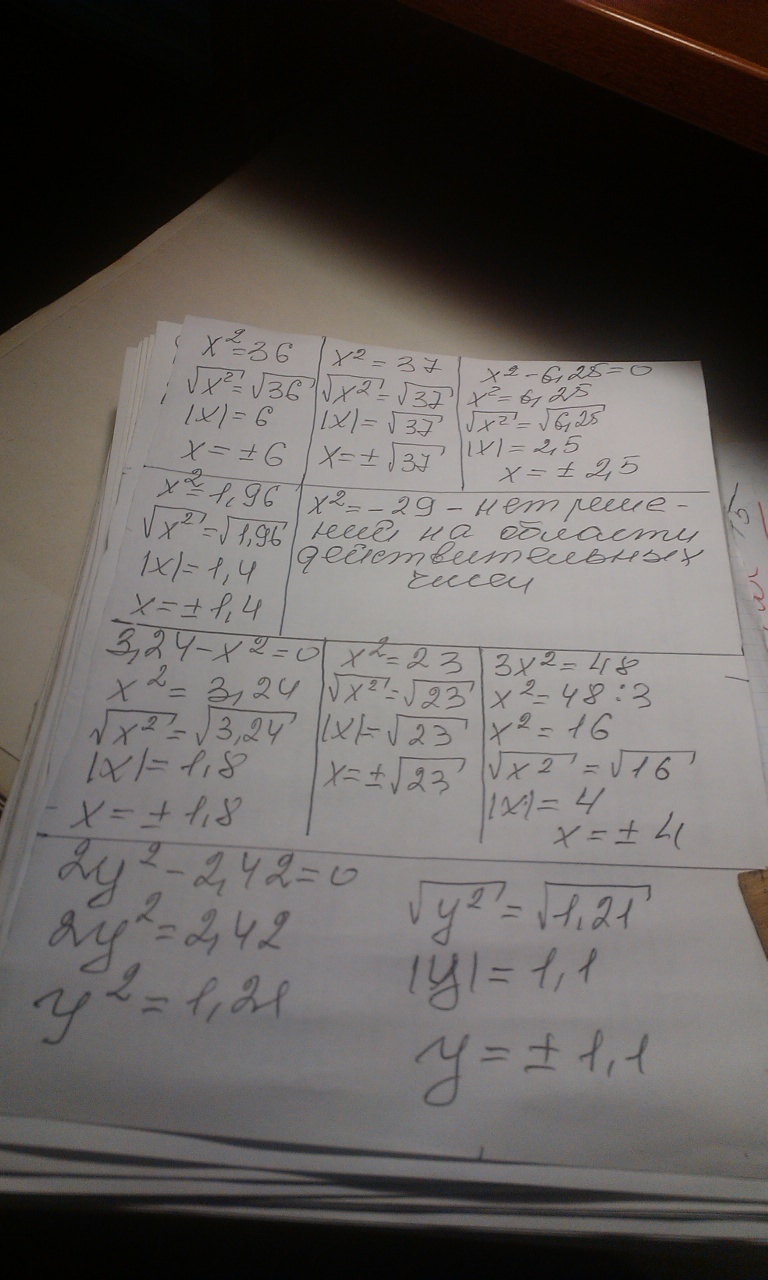 x² = 36
√x² = √36
|x| = 6
x = ± 6
x² = 37
√x² = √37
|x| = √37
x = ± √37
x² - 6,25 = 0
x² = 6,25
√x² = √6,25
|x| = 2,5
x = ± 2,5
x² = 1,96
√x² = √1,96
|x| = 1,4
x = ± 1,4
x² = - 29 - нет реше-
ний на области
действительных
чисел
3,24 - x² = 0
x² = 3,24
√x² = √3,24
|x| = 1,8
x = ± 1,8
x² = 23
√x² = √23
|x| = √23
x = ± √23
3x² = 48
x² = 48 : 3
x² = 16
√x² = √16
|x| = 4
x = ± 4
2y² - 2,42 = 0
2y² = 2,42
y² = 1,21
√y² = √1,21
|y| = 1,1
y = ± 1,1